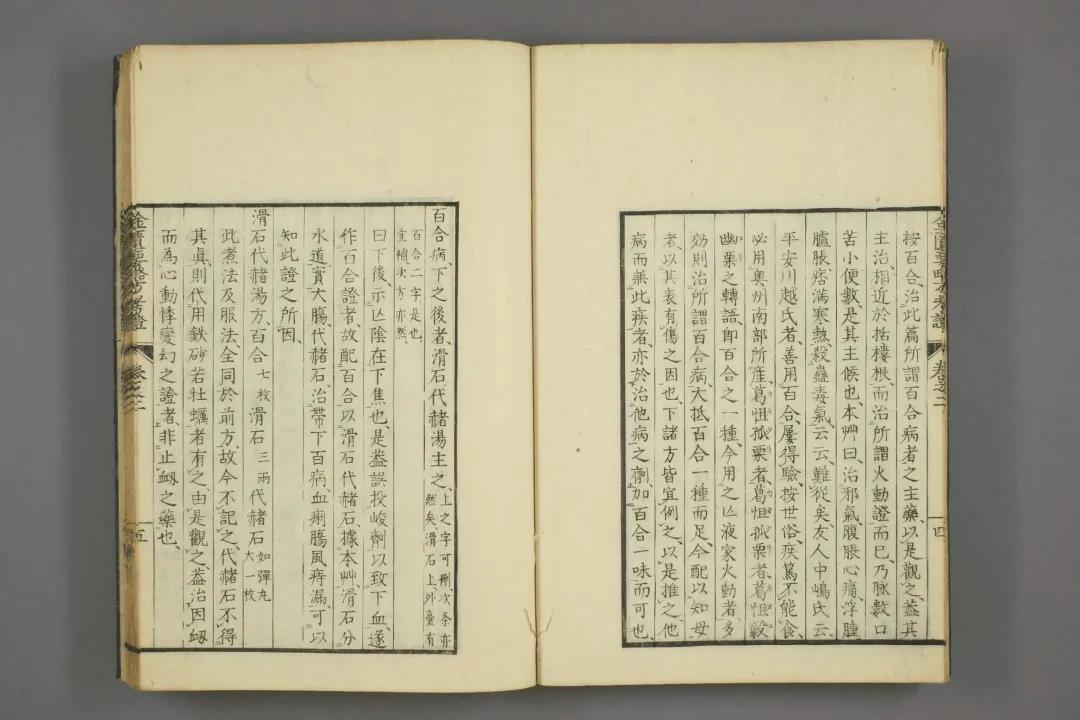 按百合治此篇所謂百合病者之主藥以是觀之蓋其
主治相近於栝樓根而治所謂火動證而已乃脉數口
苦小便數是其主候也本艸曰治邪氣腹脹心痛浮腫
臚脹痞滿寒熱殺蟲毒氣云云難從矣友人中嶋氏云
平安川越氏者善用百合屢得驗按世俗疾篤不能食
必用奥州南部所産葛怚孤栗者葛怚孤栗者葛怚穀
之轉語即百合之一種今用之亾液家火動者多
効則治所謂百合病大抵百合一種而足今配以知母
者以其表有傷之因也下諸方皆宜例之以是推之他
病而兼此疾者亦於治他病之劑加百合一味而可也
四
百合病下之後者滑石代赭湯主之上之字可刪次条亦然矣滑石上外臺有
百合二字是也宜補次方亦然
曰下後示亾陰在下焦也是蓋誤投峻劑以致下血遂
作百合證者故配百合以滑石代赭石據本艸滑石分
水道實大腸代赭石治帶下百病血痢腸風痔漏可以
知此證之所因
滑石代赭湯方百合七枚滑石三兩代赭石如彈丸大一枚
此煮法及服法全同於前方故今不記之代赭石不得
其眞則代用鉄砂若牡蠣者有之由是觀之蓋治因衂
而為心動悸變幻之證者非止衂之藥也
金匱要略方考證
卷之二
五